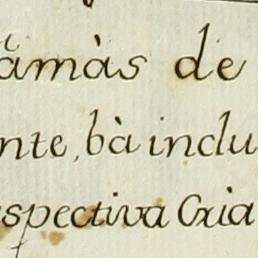 amàs de
nte, bà inclu
spectiva Cria